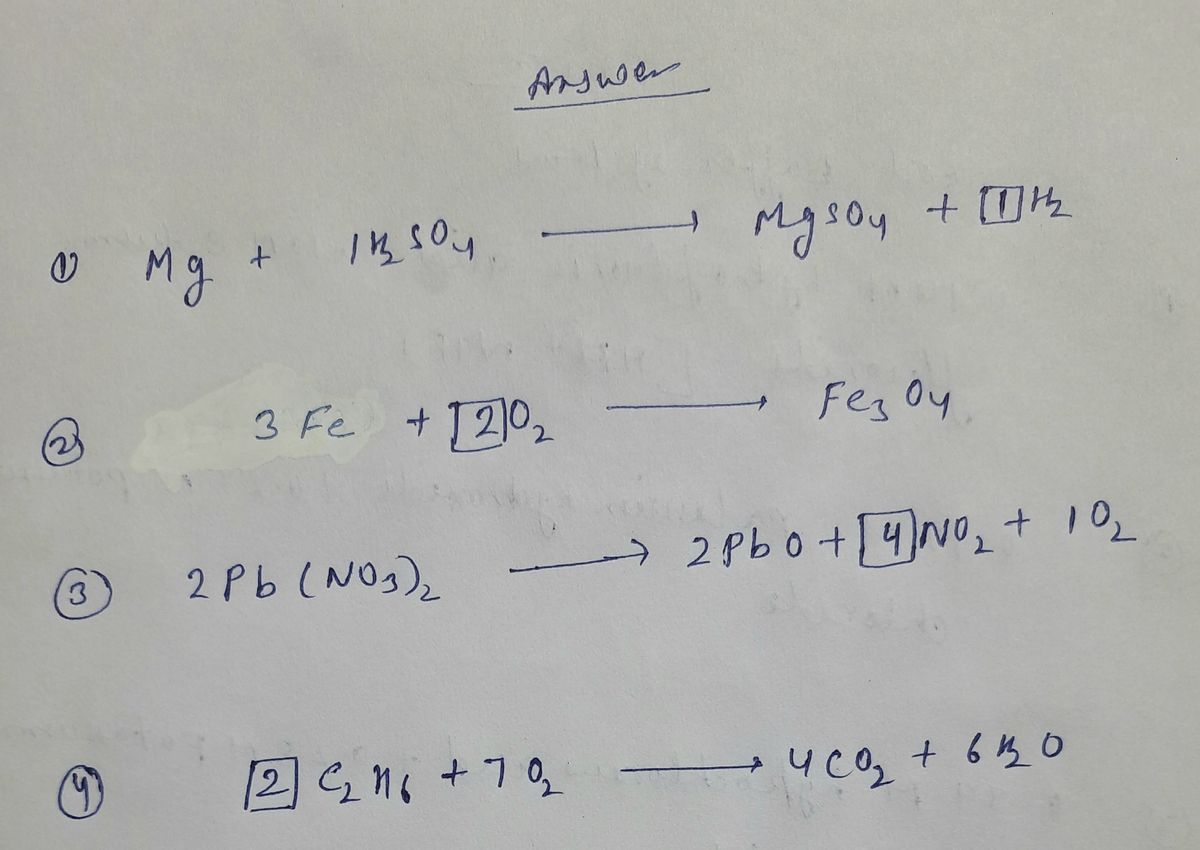 Answer
① Mg + 1H₂SO₄ ⟶ MgSO₄ + [1]H₂
② 3Fe + [2]O₂ ⟶ Fe₃O₄
③ 2Pb(NO₃)₂ ⟶ 2PbO + [4]NO₂ + 1O₂
④ [2]C₂H₆ + 7O₂ ⟶ 4CO₂ + 6H₂O